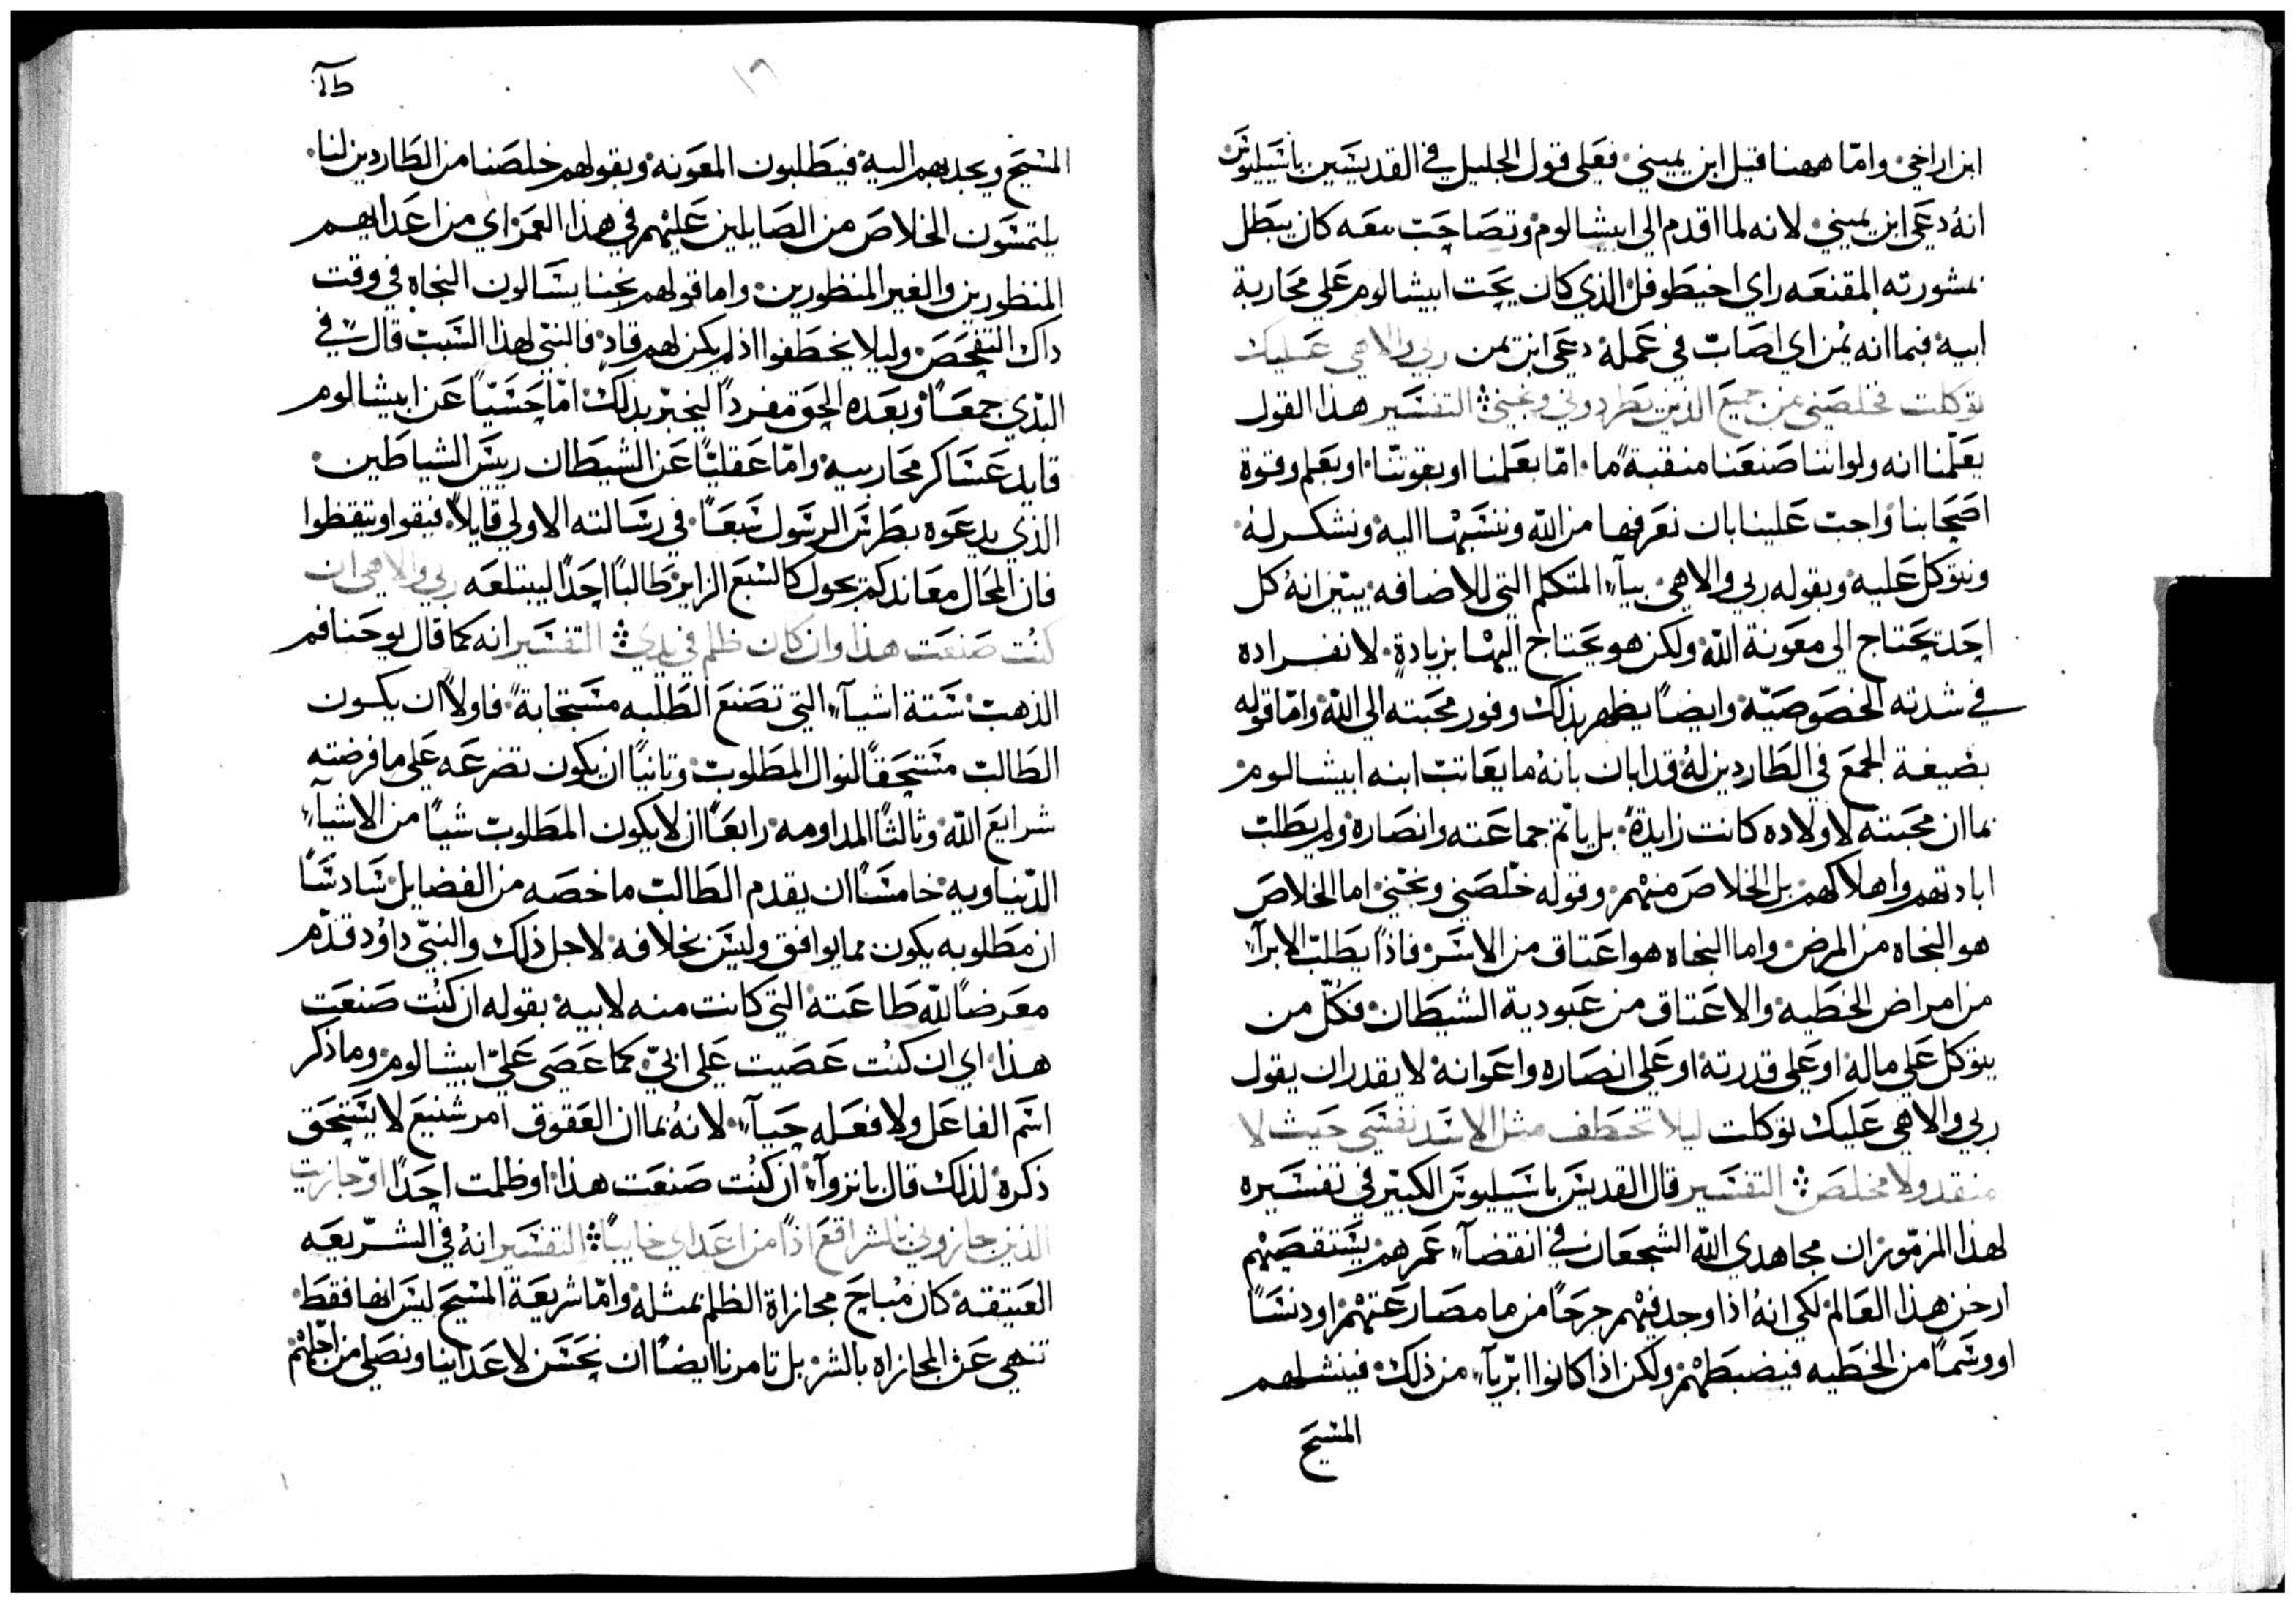 ابن اراخي، واما ههنا قيل ابن يميني، فعلى قول الجليل في القديسين باسيليوس
انه دعي ابن يميني، لانه لما اقدم الى ابيشالوم، وتصاحب معه كان يبطل
بمشورته المقنعه راي اخيطوفل، الذي كان يحت ابيشالوم على محاربة
ابيه، فبما انه يمن اي اصاب في عمله دعي ابن يمن ربي والاهي عليك
توكلت فخلصني من جميع الذين يطردوني ونجني ؞ التفسير هذا القول
يعلمنا انه ولو اننا صنعنا منقبةً ما، اما بعلمنا او بقوتنا، او بعلم وقوة
اصحابنا، واجب علينا بان نعرفها من الله وننسبها اليه، ونشكر له،
ونتوكل عليه، وبقوله ربي والاهي، بيآء المتكلم التي للاضافه، يبين انه كل
احد يحتاج الى معونة الله، ولكن هو يحتاج اليها بزيادةٍ، لانفراده
في شدته الخصوصية، وايضاً يظهر بذلك وفور محبته الى الله، واما قوله
بصيغة الجمع في الطاردين له، قد ابان بانه ما يعاتب ابنه ابيشالوم،
بما ان محبته لاولاده كانت زايدةً، بل ياتم جماعته وانصاره، ولم يطلب
ابادتهم واهلاكهم، بل الخلاص منهم، وقوله خلصني ونجني، اما الخلاص
هو النجاه من المرض، واما النجاه هو اعتاق من الاسر، فاذاً يطلب الابرآء
من امراض الخطيه، والاعتاق من عبودية الشيطان، فكل من
يتوكل على ماله، او على قدرته، او على انصاره واعوانه، لا يقدر ان يقول
ربي والاهي عليك توكلت ليلا تخطف مثل الاسد نفسي حيث لا
منقد ولا مخلص ؞ التفسير قال القديس باسيليوس الكبير في تفسيره
لهذا المزمور، ان مجاهدي الله الشجعان، في انقضآء عمرهم، يستقصيهم
ارخن هذا العالم، لكي انه اذا وجد فيهم جرحاً من ما مصارعتهم، او دنساً
او وسماً من الخطيه فيضبطهم، ولكن اذا كانوا ابريآء من ذلك، فينشلهم
المسيح
المسيح ويجدبهم اليه، فيطلبون المعونه، وبقولهم خلصنا من الطاردين لنا،
يلتمسون الخلاص من الصايلين عليهم في هذا العمر، اي من اعدايهم
المنظورين والغير المنظورين، واما قولهم نجنا يسالون النجاه في وقت
داك التفحص، وليلا يخطفوا اذ لم يكن لهم قادٍ، فالنبي لهذا السبب قال في
البدي جمعاً، وبعده الحق مفرداً ليخبر بذلك، اما حسياً عن ابيشالوم
قايد عساكر محاربيه، واما عقلياً عن الشيطان رييس الشياطين،
الذي يدعوه بطرس الرسول سبعاً، في رسالته الاولى قايلاً، فيقوا وتيقظوا
فان المحال معاندكم يجول كالسبع الزاير، طالباً احداً ليبتلعه ربي والاهي ان
كنت صنعت هذا وان كان ظلم في يدي ؞ التفسير انه كما قال يوحنا فم
الذهب، ستة اشيآء التي تصنع الطلبه مستجابةً، فاولاً ان يكون
الطالب مستحقاً لنوال المطلوب، وثانياً ان يكون تضرعه على ما فرضته
شرايع الله، وثالثاً المداومه، رابعاً ان لا يكون المطلوب شياً من الاشيآء
الدنياويه، خامساً ان يقدم الطالب ما خصه من الفضايل، سادساً
ان مطلوبه يكون مما يوافق وليس بخلافه، لاجل ذلك والنبي داوُد قدم
معرضاً لله طاعته التي كانت منه لابيه، بقوله ان كنت صنعت
هذا، اي ان كنت عصيت على ابي، كما عصى عليّ ابيشالوم، وما ذكر
اسم الفاعل ولا فعله حيآءً، لانه بما ان العقوق امر شنيع لا يستحق
ذكره، لذلك قال بانزوآء، ان كنت صنعت هذا، او ظلمت احداً او جازيت
الذين جازوني بالشر اقع اذاً من اعداي خايباً ؞ التفسير انه في الشريعه
العتيقه، كان مباح مجازاة الظلم بمثله، واما شريعة المسيح ليس انها فقط
تنهي عن المجازاه بالشر، بل تامرنا ايضاً ان نحسن لاعداينا ونصلي من اجلهم